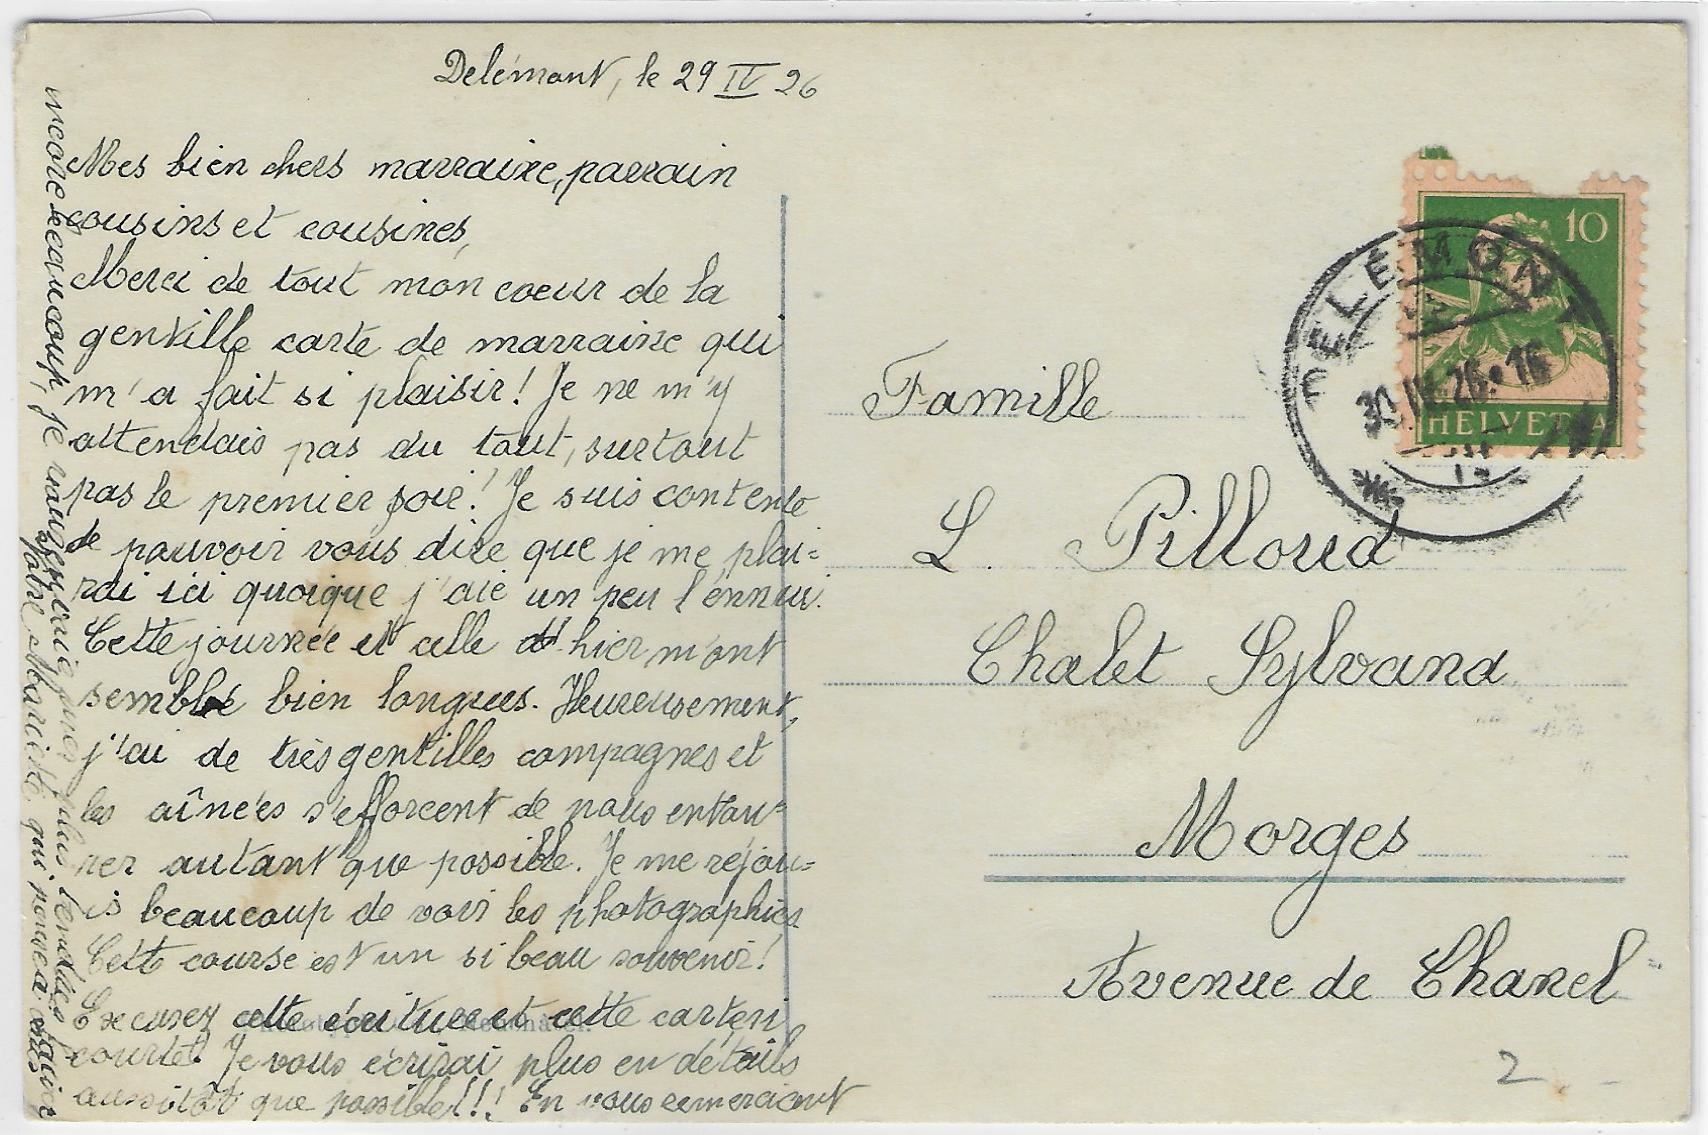 Delémont, le 29 IV 26
Mes bien chers marraine, parrain
cousins et cousines,
Merci de tout mon coeur de la
gentille carte de marraine qui
m'a fait si plaisir! Je ne m'y
attendais pas du tout, surtout
pas le premier soir! Je suis contente
de pouvoir vous dire que je me plai-
rai ici quoique j'aie un peu l'ennui.
Cette journée et celle d'hier m'ont
semblé bien longues. Heureusement,
j'ai de très gentilles compagnes et
les aînées s'efforcent de nous entou-
rer autant que possible. Je me réjou-
is beaucoup de voir les photographies
Cette course est un si beau souvenir!
Excusez cette écriture et cette carte si
courte! Je vous écrirai plus en détails
aussitôt que possible!!! En vous remerciant
encore beaucoup, je vous envoie mes plus tendres
Votre qui pense à
Famille
L. Pilloud
Chalet Sylvana
Morges
Avenue de Chanel
2
10
HELVETIA
DELÉMONT
30.IV.26.16